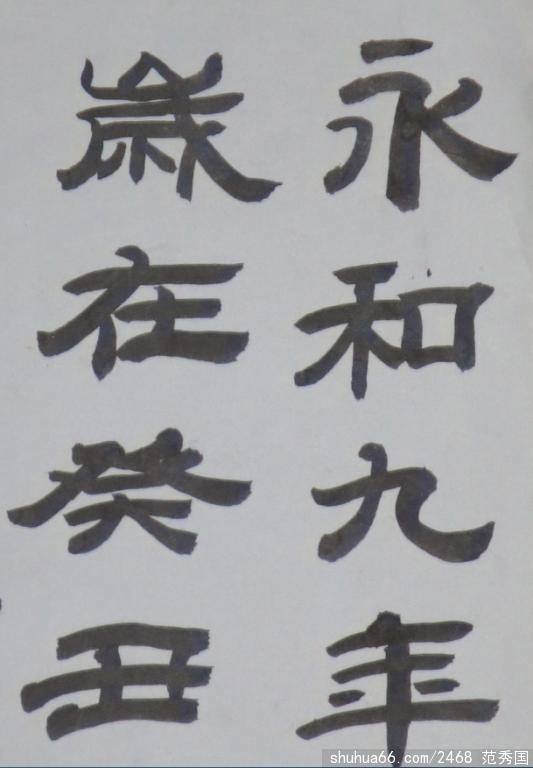 永和九年
歲在癸丑
shuhua66.com/2468 范秀国